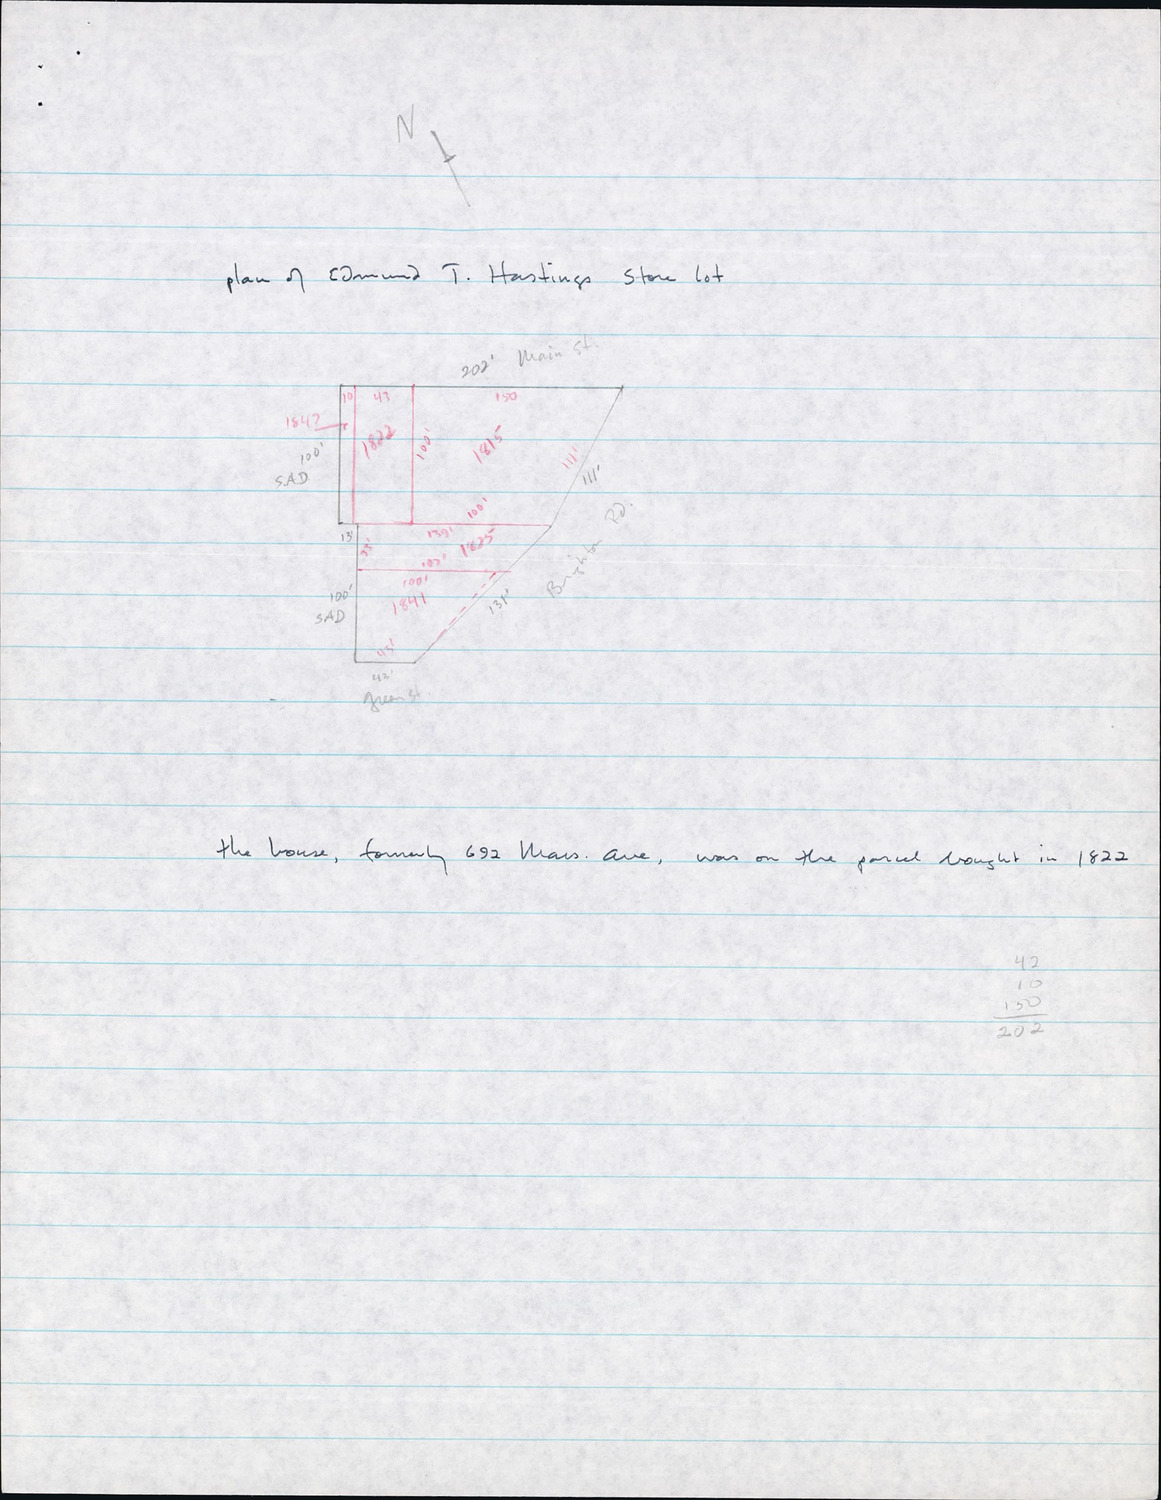 N
plan of Edmund T. Hastings Store lot
202' Main St.
10 43 150
184?
1822
100'
1815
111'
111'
100'
S.A.D.
100'
Brighton Rd.
13'
33'
139'
1825
102'
100'
1841
100'
SAD
131'
43'
42'
Green St.
the house, formerly 692 Mass. Ave, was on the parcel bought in 1822
42
10
150
202